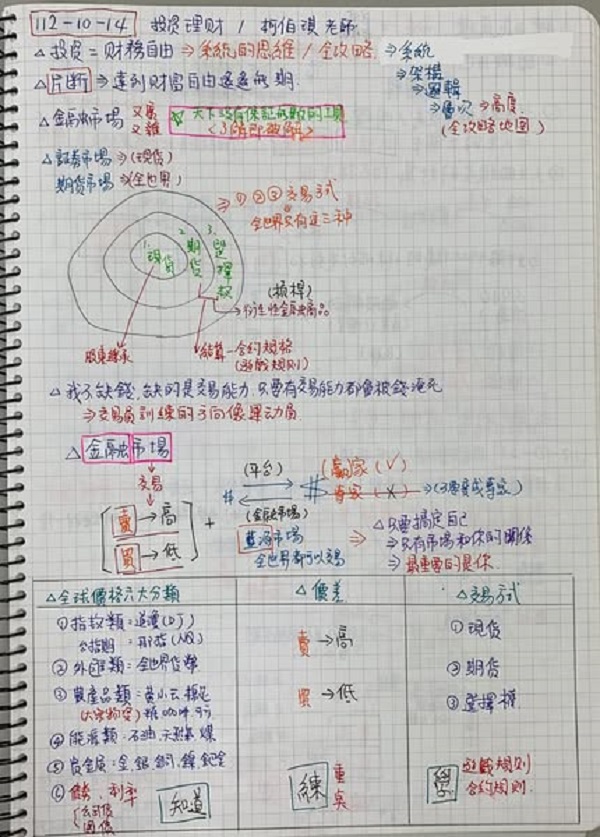 112-10-14 投资理财 / 柯伯琪老師
△投资=财務自由⇒系統的思維/全攻略⇒系統
⇒架構
⇒邏輯
⇒層次⇒高度
(全攻略地圖)
△片断⇒達到财富自由遥遥無期.
△金融市場 又亂 又雜 天下没有保証
△証券市場⇒(現货)
期货市場⇒(全世界)
⇒①②③交易方式
全世界只有這三種
1. 現货
2. 期货
3. 選擇权
(槓桿)
衍生性金融商品
結算-合约規格
(遊戲規则)
△我不缺錢,缺的是交易能力.只要有交易能力都會被錢淹死
⇒交易員訓練的方向像運动員
△金融市場
交易
賣→高
買→低
+
(平台)
(金融市場)
贏家(√)
專家(X)→(不要變成專家)
藍海市場
全世界都可以交易
⇒△只要搞定自己
⇒只有市場和你的關係
⇒最重要的是你.
△全球價格六大分類
①指数類=道瓊(DJ)
台指期=那指(NQ)
②外匯類=全世界货幣
③農產品類=黄小玉 棉花
(大宗物资)糖咖啡.可可
④能源類=石油.天然氣 煤
⑤貴金属=金.銀.銅.鎳.鈀金
⑥債券、利率
公司債
國債
知道
△價差
賣→高
買→低
練 重桌
△交易方式
①現货
②期货
③選擇權
學 遊戲規则
合约規则.